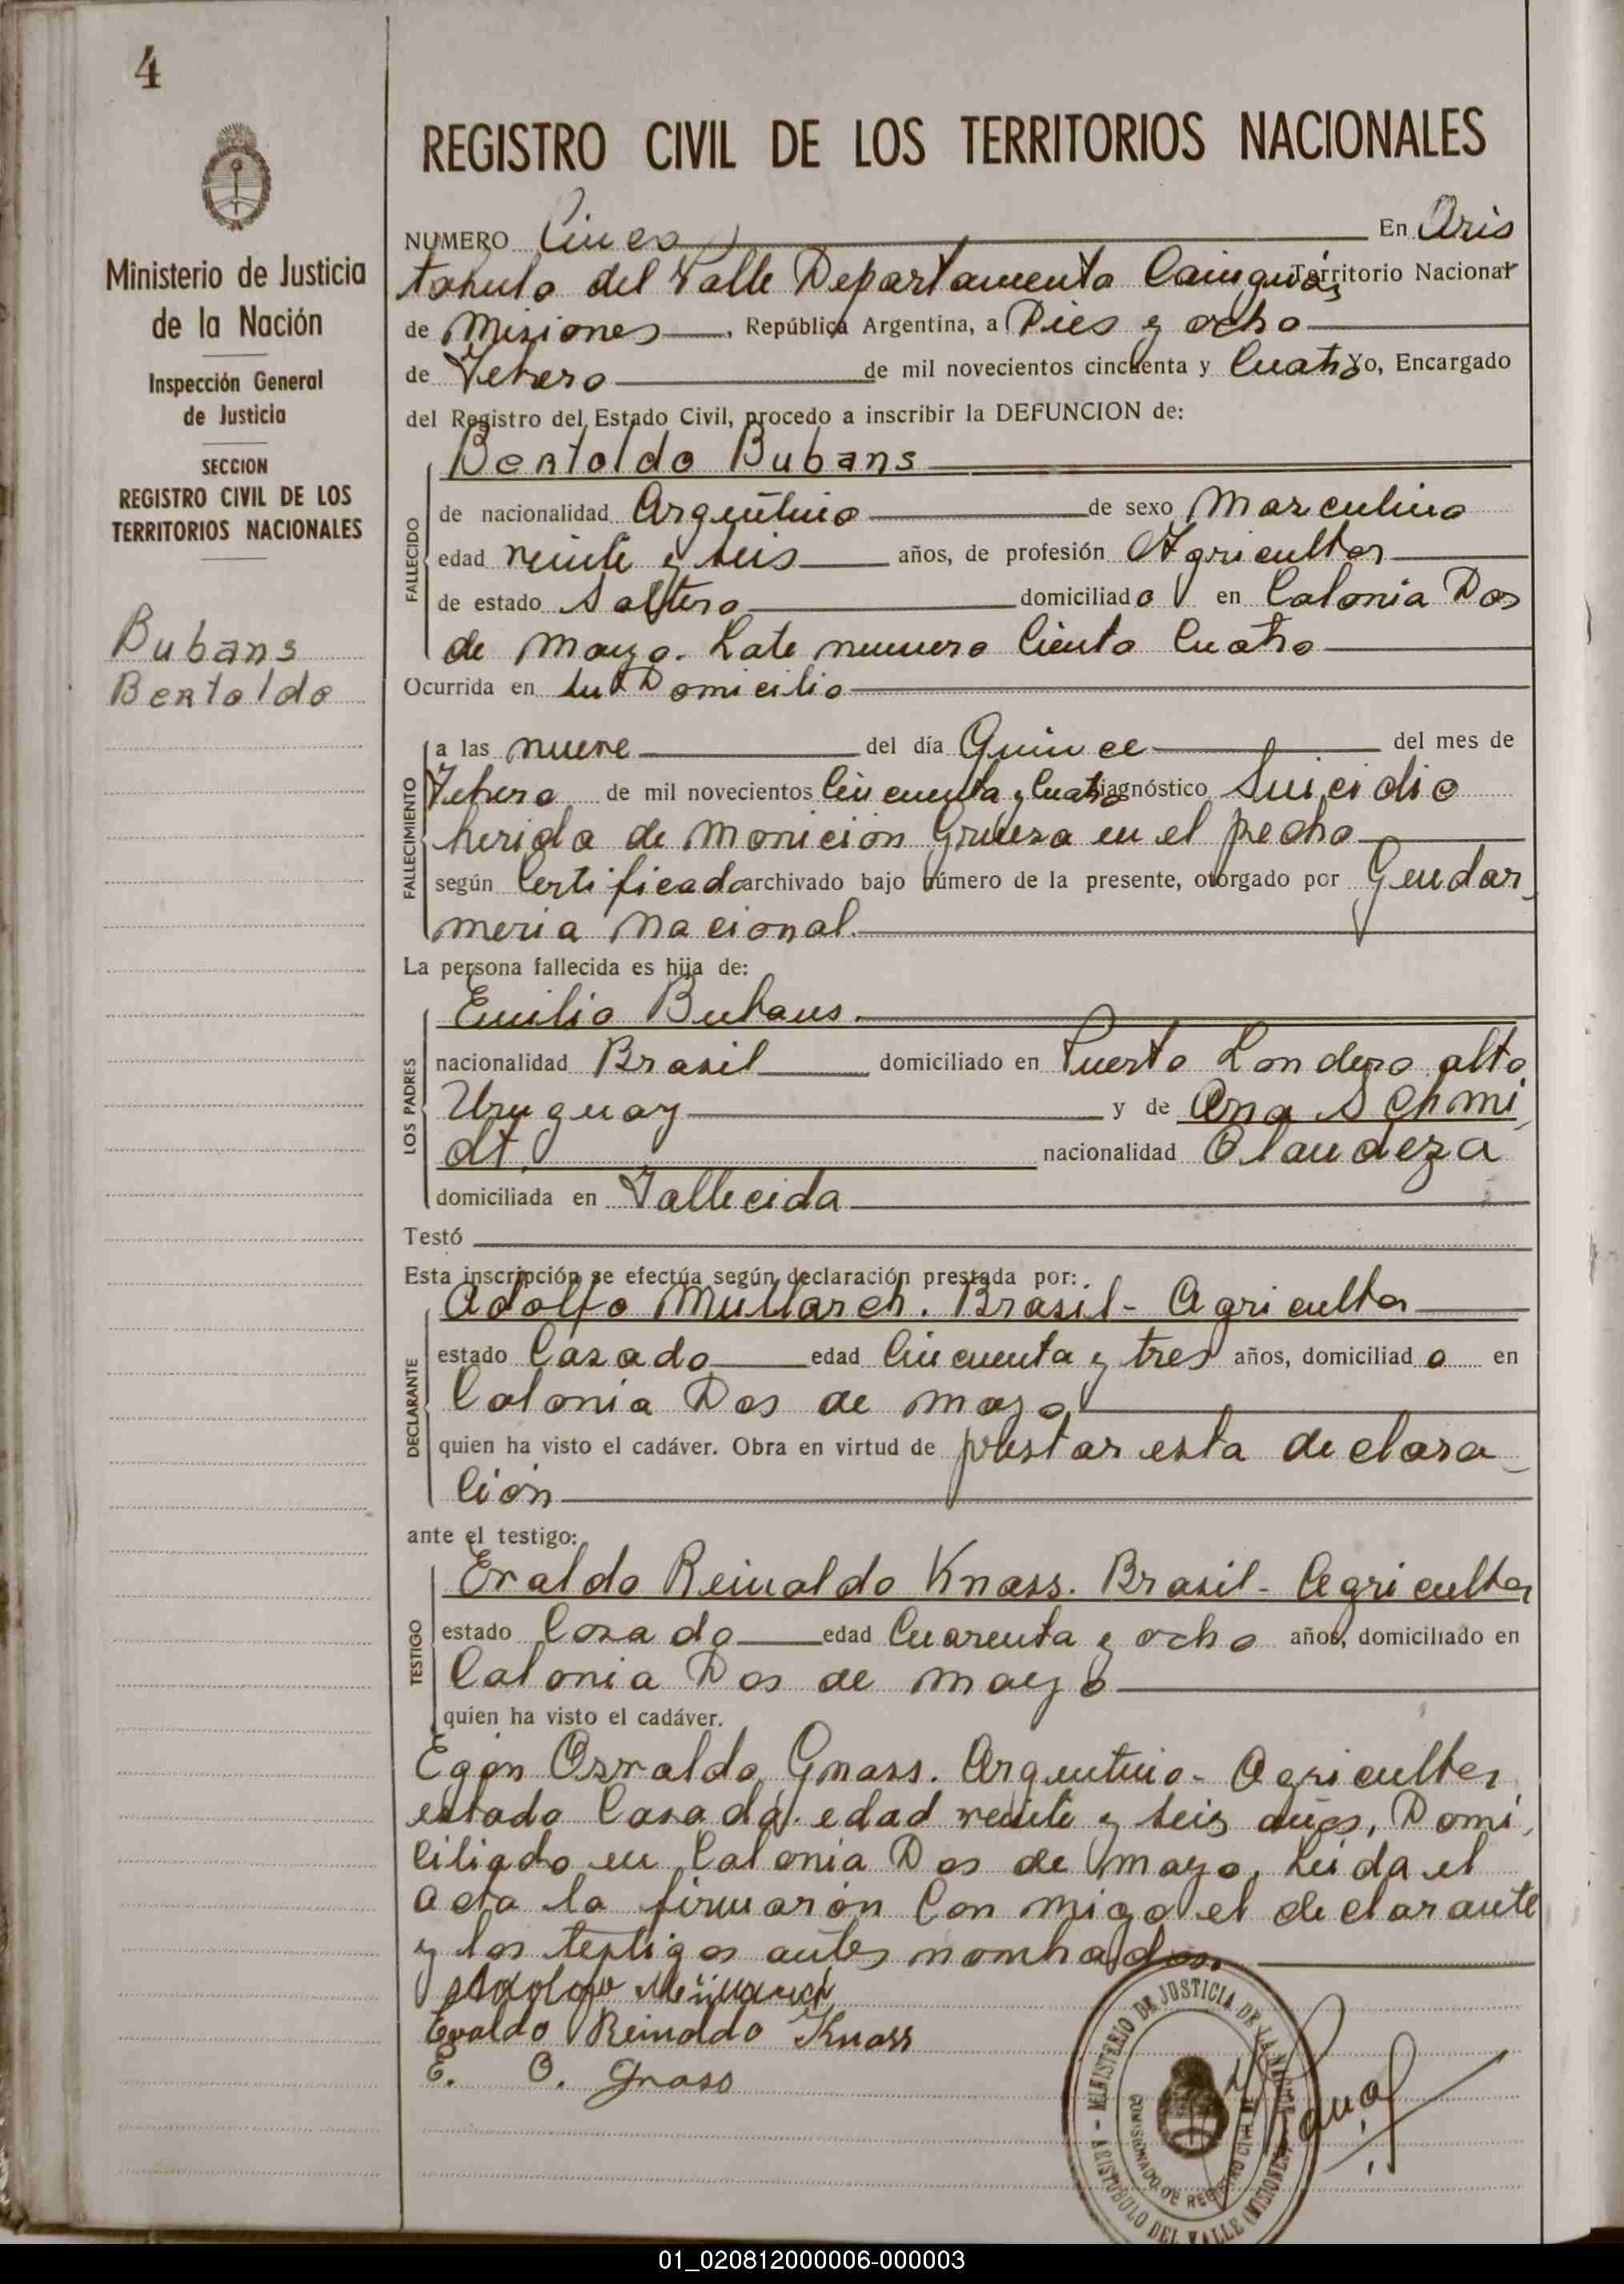 4
Ministerio de Justicia
de la Nación
Inspección General
de Justicia
SECCION
REGISTRO CIVIL DE LOS
TERRITORIOS NACIONALES
Bubans
Bertoldo
REGISTRO CIVIL DE LOS TERRITORIOS NACIONALES
NUMERO Cinco En Aris
tobulo del Valle Departamento Cainguás Territorio Nacional
de Misiones, República Argentina, a Dies y ocho
de Febrero de mil novecientos cincuenta y Cuatro yo, Encargado
del Registro del Estado Civil, procedo a inscribir la DEFUNCION de:
Bertoldo Bubans
FALLECIDO
de nacionalidad Argentino de sexo Marculino
edad veinte y seis años, de profesión Agricultor
de estado Soltero domiciliado en Colonia Dos
de Mayo. Lote numero Ciento Cuatro
Ocurrida en su Domicilio
FALLECIMIENTO
a las nueve del día Quince del mes de
Febrero de mil novecientos Cincuenta y Cuatro diagnóstico Suicidio
herida de Monición Grueza en el pecho
según Certificado archivado bajo número de la presente, otorgado por Gendar
meria Nacional.
La persona fallecida es hija de:
LOS PADRES
Emilio Bubans.
nacionalidad Brasil domiciliado en Puerto Londero alto
Uruguay y de Ana Schmi
dt. nacionalidad Olandeza
domiciliada en Fallecida
Testó
Esta inscripción se efectúa según declaración prestada por:
Adolfo Müllarch. Brasil - Agricultor
DECLARANTE
estado Casado edad Cincuenta y tres años, domiciliado en
Colonia Dos de Mayo
quien ha visto el cadáver. Obra en virtud de prestar esta declara
ción
ante el testigo:
Evaldo Reinaldo Knass. Brasil - Agricultor
TESTIGO
estado Casado edad Cuarenta y ocho años, domiciliado en
Colonia Dos de Mayo
quien ha visto el cadáver.
Egon Osvaldo Gnass. Argentino - Agricultor
estado Casado. edad veinte y seis años, Domi
ciliado en Colonia Dos de Mayo, Leida el
acta la firmarón Con migo el declarante
y los testigos antes nombrados
Adolfo
Evaldo Reinoldo Knass
E. O. Gnass
MINISTERIO DE JUSTICIA DE LA NACIÓN - ARISTOBULO DEL VALLE (MISIONES)
COMISIONADO DE REGISTRO CIVIL
01_020812000006-000003